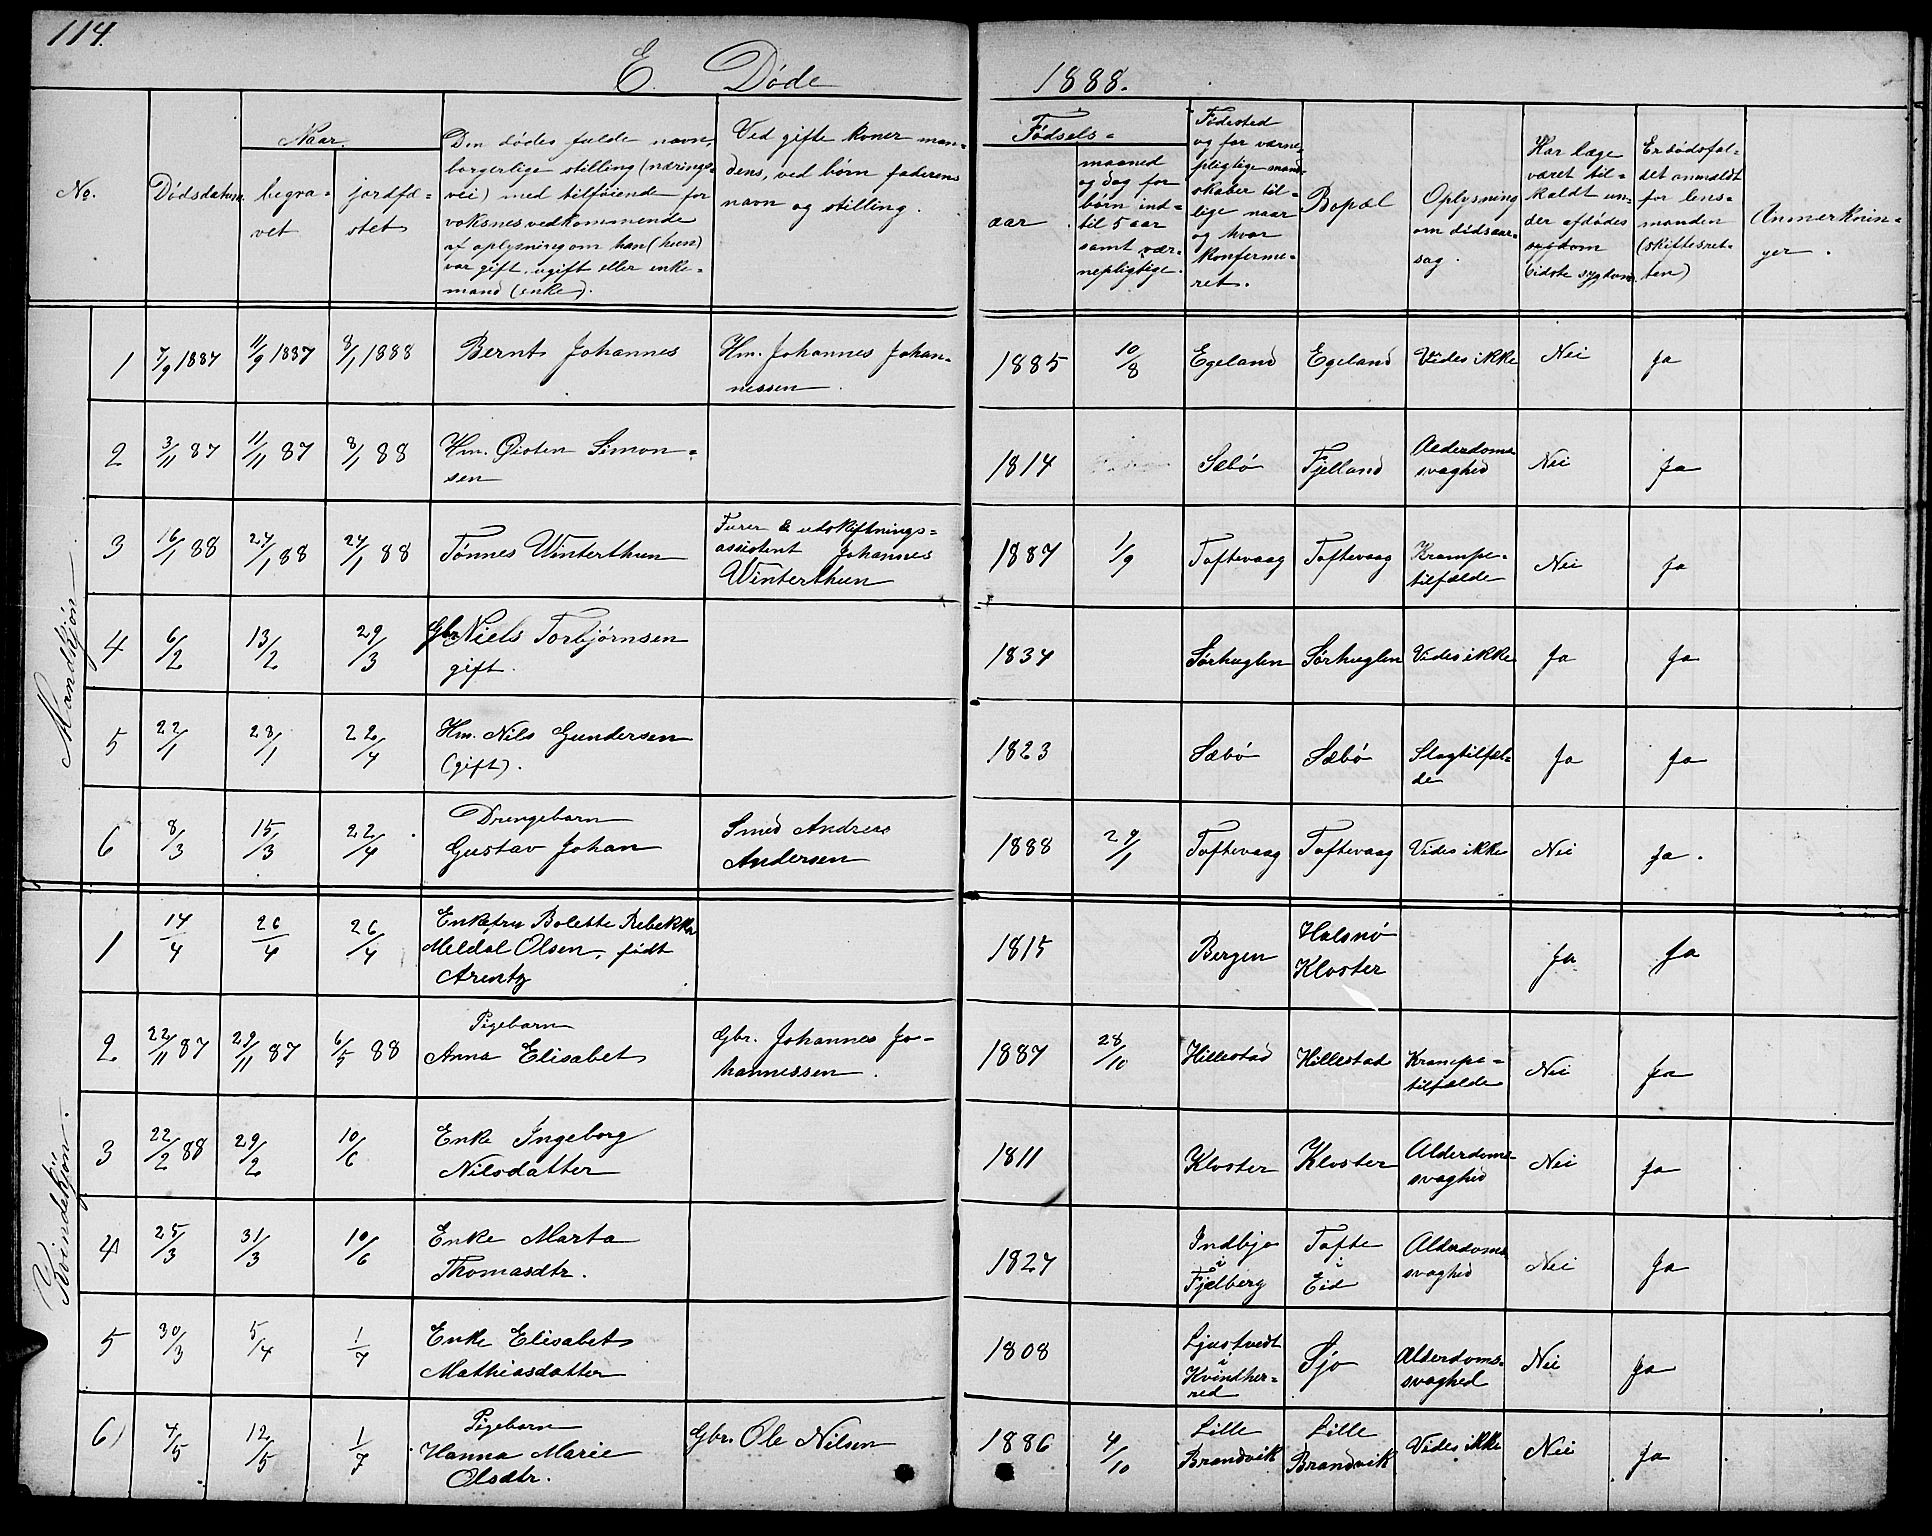 114.
E. Døde 1888.
No.
Dødsdatum.
Naar
begra-
vet
jordfæ-
stet
Den dødes fulde navn,
borgerlige stilling (nærings-
vei) med tilføiende for
voksnes vedkommende
af oplysning om han (hun)
var gift, ugift eller enke-
mand (enke).
Ved gifte koner man-
dens, ved børn faderens
navn og stilling.
Fødsels-
aar
maaned
og dag for
børn ind-
til 5 aar
samt vær-
nepligtige.
Fødested
og for værne-
pligtige mand-
skaber til-
lige naar
og hvor
konferme-
ret.
Bopæl
Oplysning
om dødsaar-
sag.
Har læge
været til-
kaldt un-
der afdødes
sygdom
(sidste sygdom
Er dødsfal-
det anmeldt
for lens-
manden
(skifteret-
ten)
Anmerknin-
ger.
Mandkjøn
1 7/9 1887 11/9 1887 8/1 1888 Bernt Johannes Hm. Johannes Johan-
nessen. 1885 10/8 Egeland Egeland Vides ikke Nei Ja
2 3/11 87 11/11 87 8/1 88 Hm. Øisten Simon-
sen 1814 Sebø Fjelland Alderdoms
svaghed Nei Ja
3 16/1 88 27/1 88 27/1 88 Tønnes Winterthun Furer & udskiftnings-
assistent Johannes
Winterthun 1887 1/9 Toftevaag Toftevaag Krampe-
tilfælde Nei Ja
4 6/2 13/2 29/3 Gbr Niels Torbjørnsen
gift. 1834 Sørhuglen Sørhuglen Vides ikke Ja Ja
5 22/1 28/1 22/4 Hm. Nils Gundersen
(gift). 1823 Sæbø Sæbø Slagtilfæl-
de Ja Ja
6 8/3 15/3 22/4 Drengebarn
Gustav Johan Smed Andreas
Andersen 1888 27/1 Toftevaag Toftevaag Vides ikke Nei Ja.
Kvindekjøn.
1 17/4 26/4 26/4 Enkefru Bolette Rebekka
Meldal Olsen, født
Arentz 1815 Bergen Halsnø
Kloster Ja Ja
2 22/11 87 29/11 87 6/5 88 Pigebarn
Anna Elisabet Gbr. Johannes Jo-
hannessen. 1887 28/10 Hillestad Hillestad Krampe-
tilfælde Nei Ja
3 22/2 88 29/2 10/6 Enke Ingeborg
Nilsdatter 1811 Kloster Kloster Alderdoms-
svaghed Nei Ja
4 25/3 31/3 10/6 Enke Marta
Thomasdtr. 1827 Indbjo
i
Fjelberg Tofte
i
Eid Alderdoms
svaghed Nei Ja
5 30/3 5/4 1/7 Enke Elisabet
Mathiasdatter 1808 Ljostvedt
i
Kvindher-
red Sjo Alderdoms-
svaghed Nei Ja
6) 4/5 12/5 1/7 Pigebarn
Hanna Marie
Olsdtr. Gbr. Ole Nilsen 1886 4/10 Lille
Brandvik Lille
Brandvik Vides ikke Nei Ja